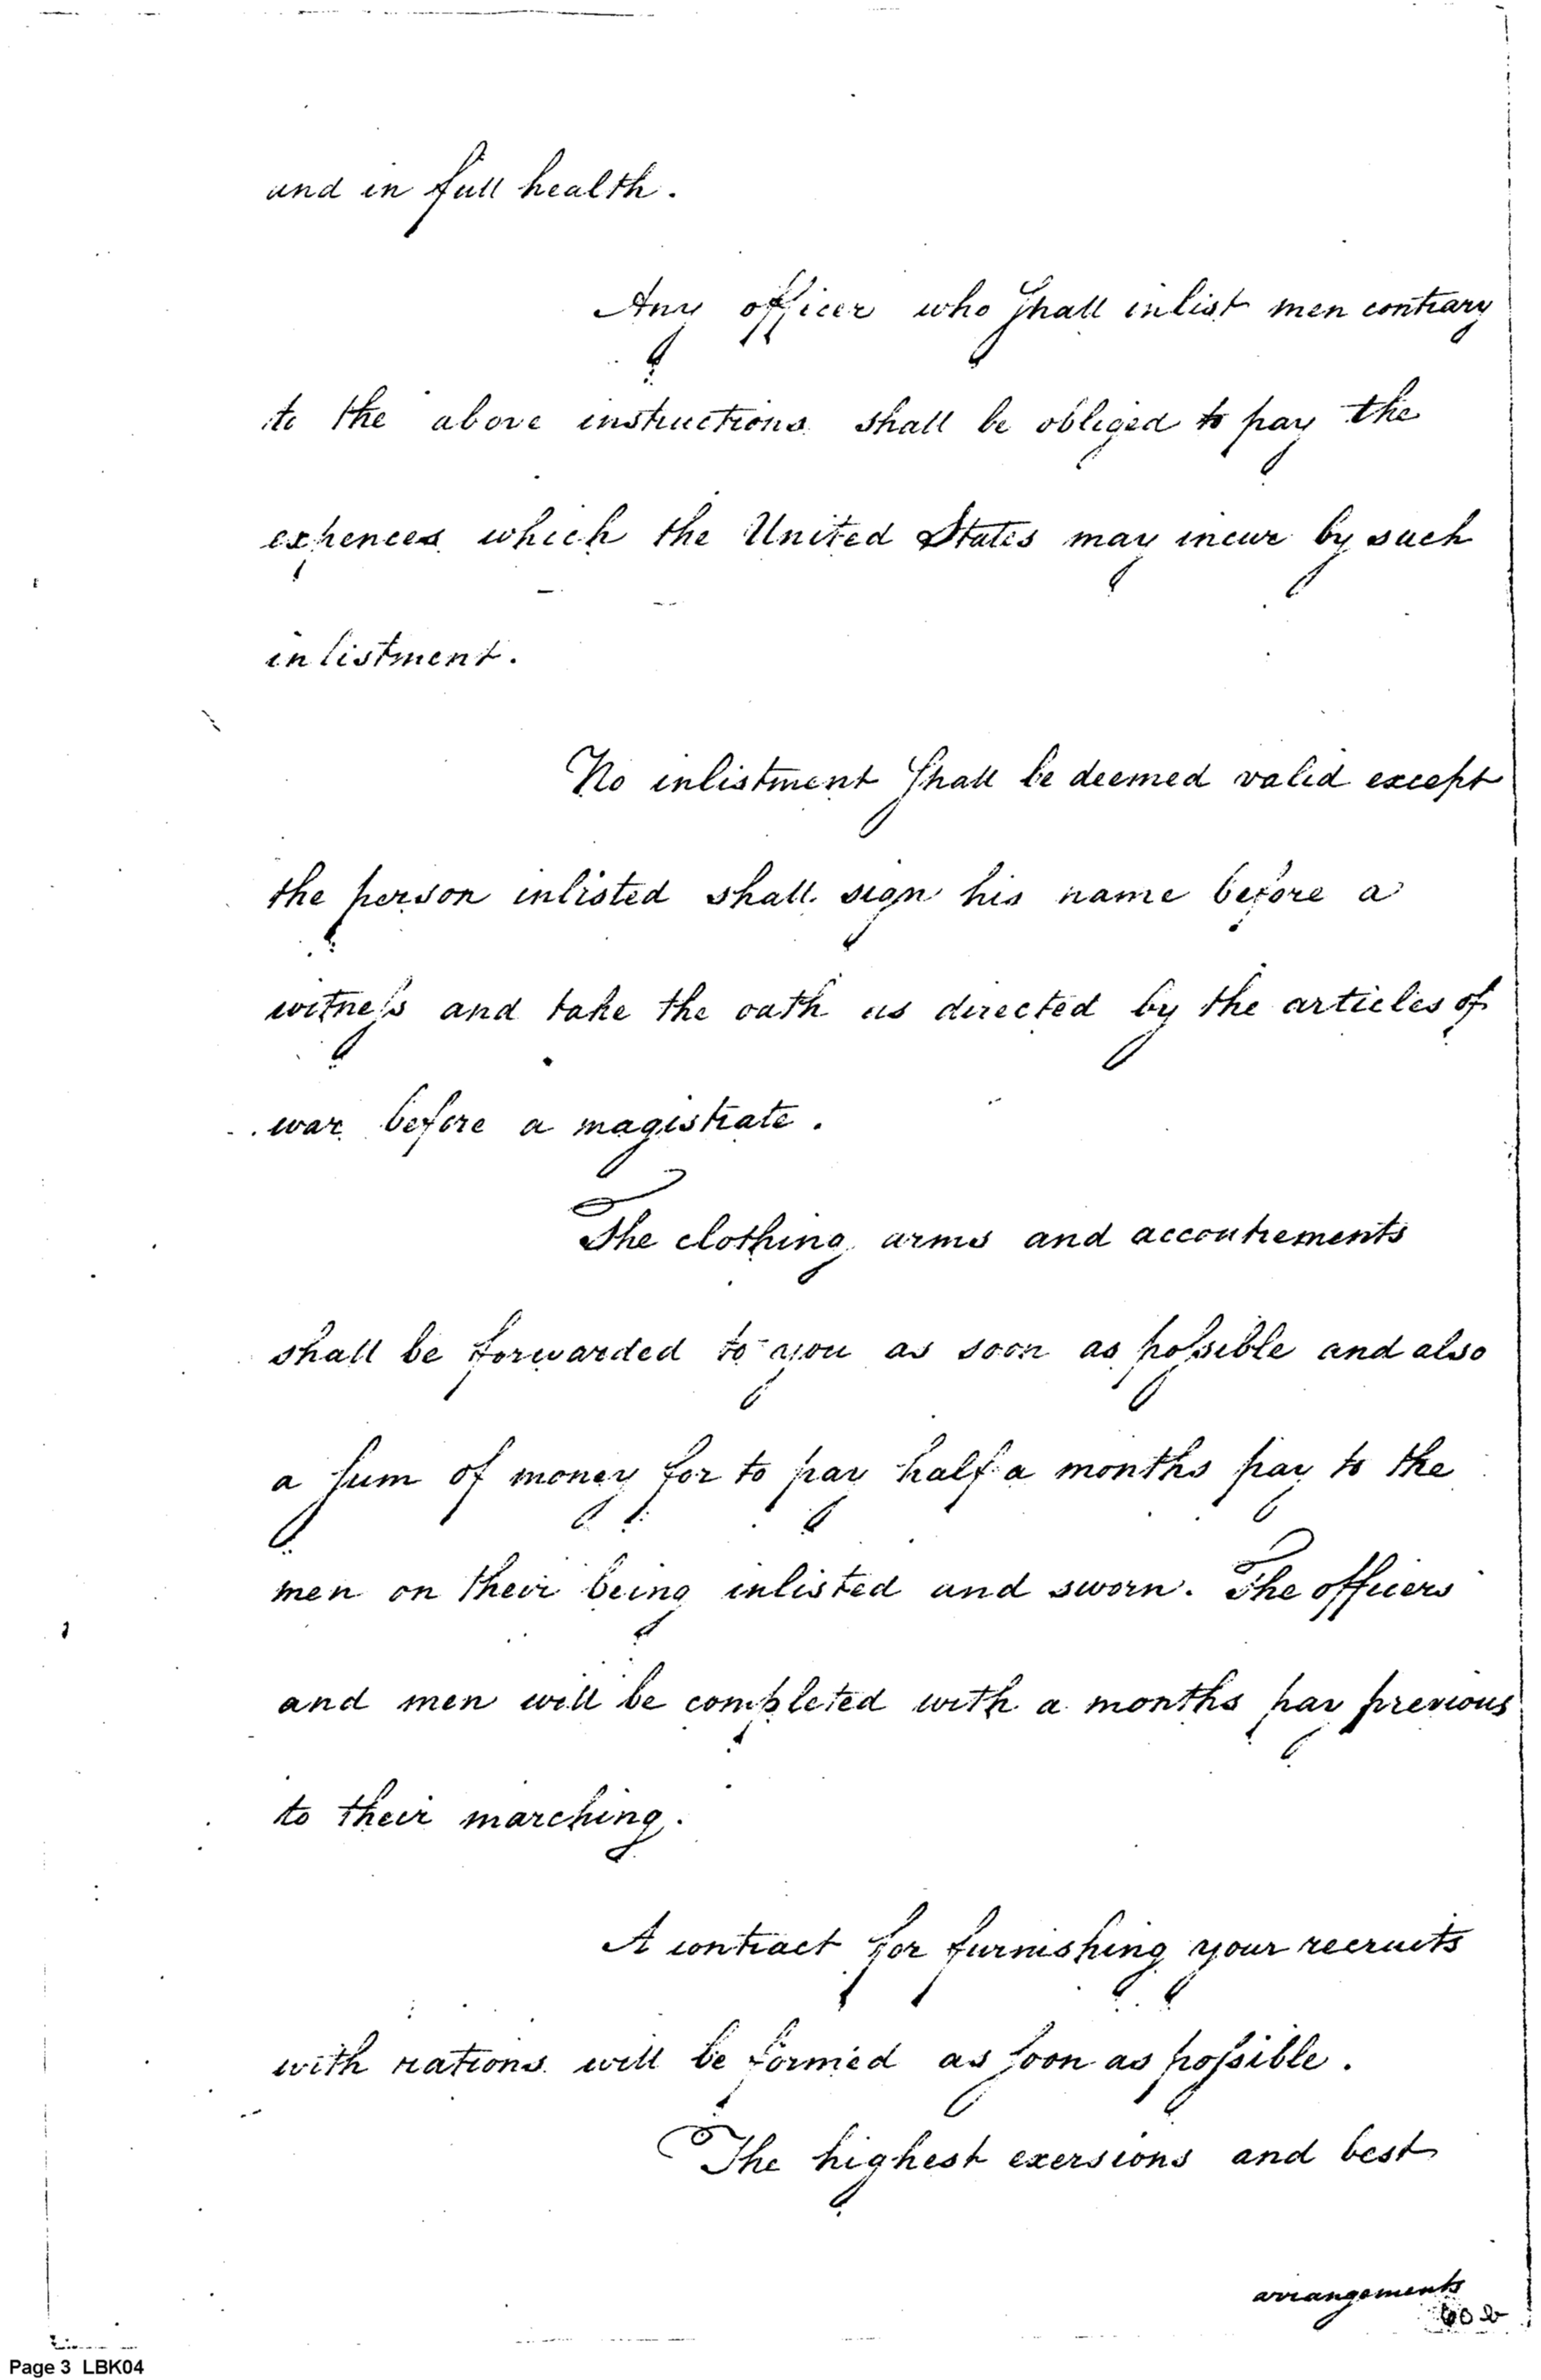 and in full health.
Any officer who shall inlist men contrary
to the above instructions shall be obliged to pay the
expences which the United States may incur by such
inlistment.
No inlistment shall be deemed valid except
the person inlisted shall sign his name before a
witness and take the oath as directed by the articles of
war before a magistrate.
The clothing arms and accoutrements
shall be forwarded to you as soon as possible and also
a sum of money for to pay half a months pay to the
men on their being inlisted and sworn. The officers
and men will be completed with a months pay previous
to their marching.
A contract for furnishing your recruits
with rations will be formed as soon as possible.
The highest exersions and best
arrangements
Page 3 LBK04